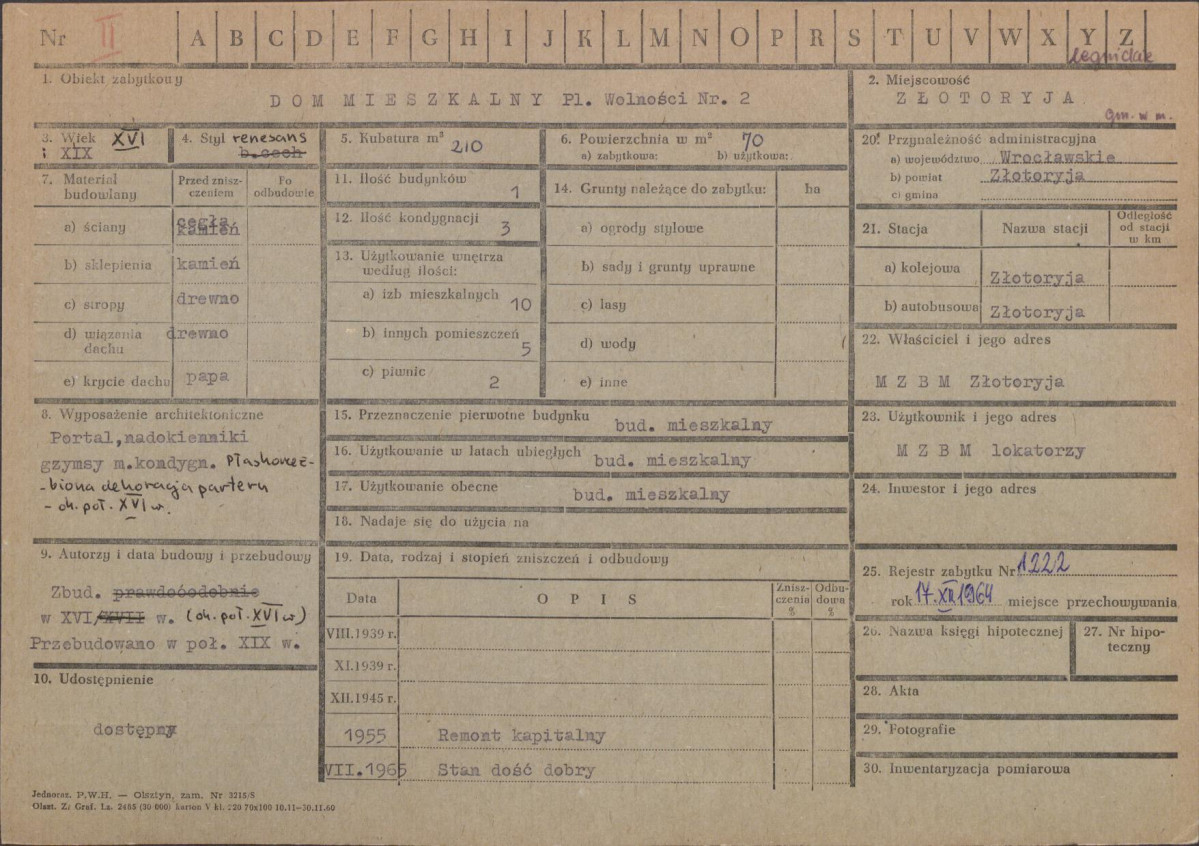 Nr II A B C D E F G H I J K L M N O P R S T U V W X Y Z
legnickie
1. Obiekt zabytkowy
DOM MIESZKALNY Pl. Wolności Nr. 2
2. Miejscowość
ZŁOTORYJA
gm. w m.
3. Wiek XVI
i XIX
4. Styl renesans
b.cech
5. Kubatura m³ 210
6. Powierzchnia w m² 70
a) zabytkowa: b) użytkowa:
20. Przynależność administracyjna
a) województwo Wrocławskie
b) powiat Złotoryja
c) gmina
7. Materiał budowlany
Przed zniszczeniem
Po odbudowie
a) ściany cegła kamień
b) sklepienia kamień
c) stropy drewno
d) wiązania dachu drewno
e) krycie dachu papa
11. Ilość budynków 1
12. Ilość kondygnacji 3
13. Użytkowanie wnętrza
według ilości:
a) izb mieszkalnych 10
b) innych pomieszczeń 5
c) piwnic 2
14. Grunty należące do zabytku: ha
a) ogrody stylowe
b) sady i grunty uprawne
c) lasy
d) wody
e) inne
21. Stacja Nazwa stacji Odległość od stacji w km
a) kolejowa Złotoryja
b) autobusowa Złotoryja
22. Właściciel i jego adres
M Z B M Złotoryja
8. Wyposażenie architektoniczne
Portal, nadokienniki
gzymsy m.kondygn. Płaskorzeź-
-biona dekoracja parteru
- ok. poł. XVI w.
15. Przeznaczenie pierwotne budynku bud. mieszkalny
16. Użytkowanie w latach ubiegłych bud. mieszkalny
17. Użytkowanie obecne bud. mieszkalny
18. Nadaje się do użycia na
23. Użytkownik i jego adres
M Z B M lokatorzy
24. Inwestor i jego adres
9. Autorzy i data budowy i przebudowy
Zbud. prawdoóodobnie
w XVI/XVII w. (ok. poł. XVI w)
Przebudowano w poł. XIX w.
10. Udostępnienie
dostępny
19. Data, rodzaj i stopień zniszczeń i odbudowy
Data OPIS Zniszczenia % Odbudowa %
VIII.1939 r.
XI.1939 r.
XII.1945 r.
1955 Remont kapitalny
VII.1965 Stan dość dobry
25. Rejestr zabytku Nr 1222
rok 17.XII 1964 miejsce przechowywania
26. Nazwa księgi hipotecznej
27. Nr hipoteczny
28. Akta
29. Fotografie
30. Inwentaryzacja pomiarowa
Jednoraz. P.W.H. — Olsztyn, zam. Nr 3215/S
Olszt. Z. Graf. Lz. 2485 (30 000) karton V kl. 220 70x100 10.11—30.11.60